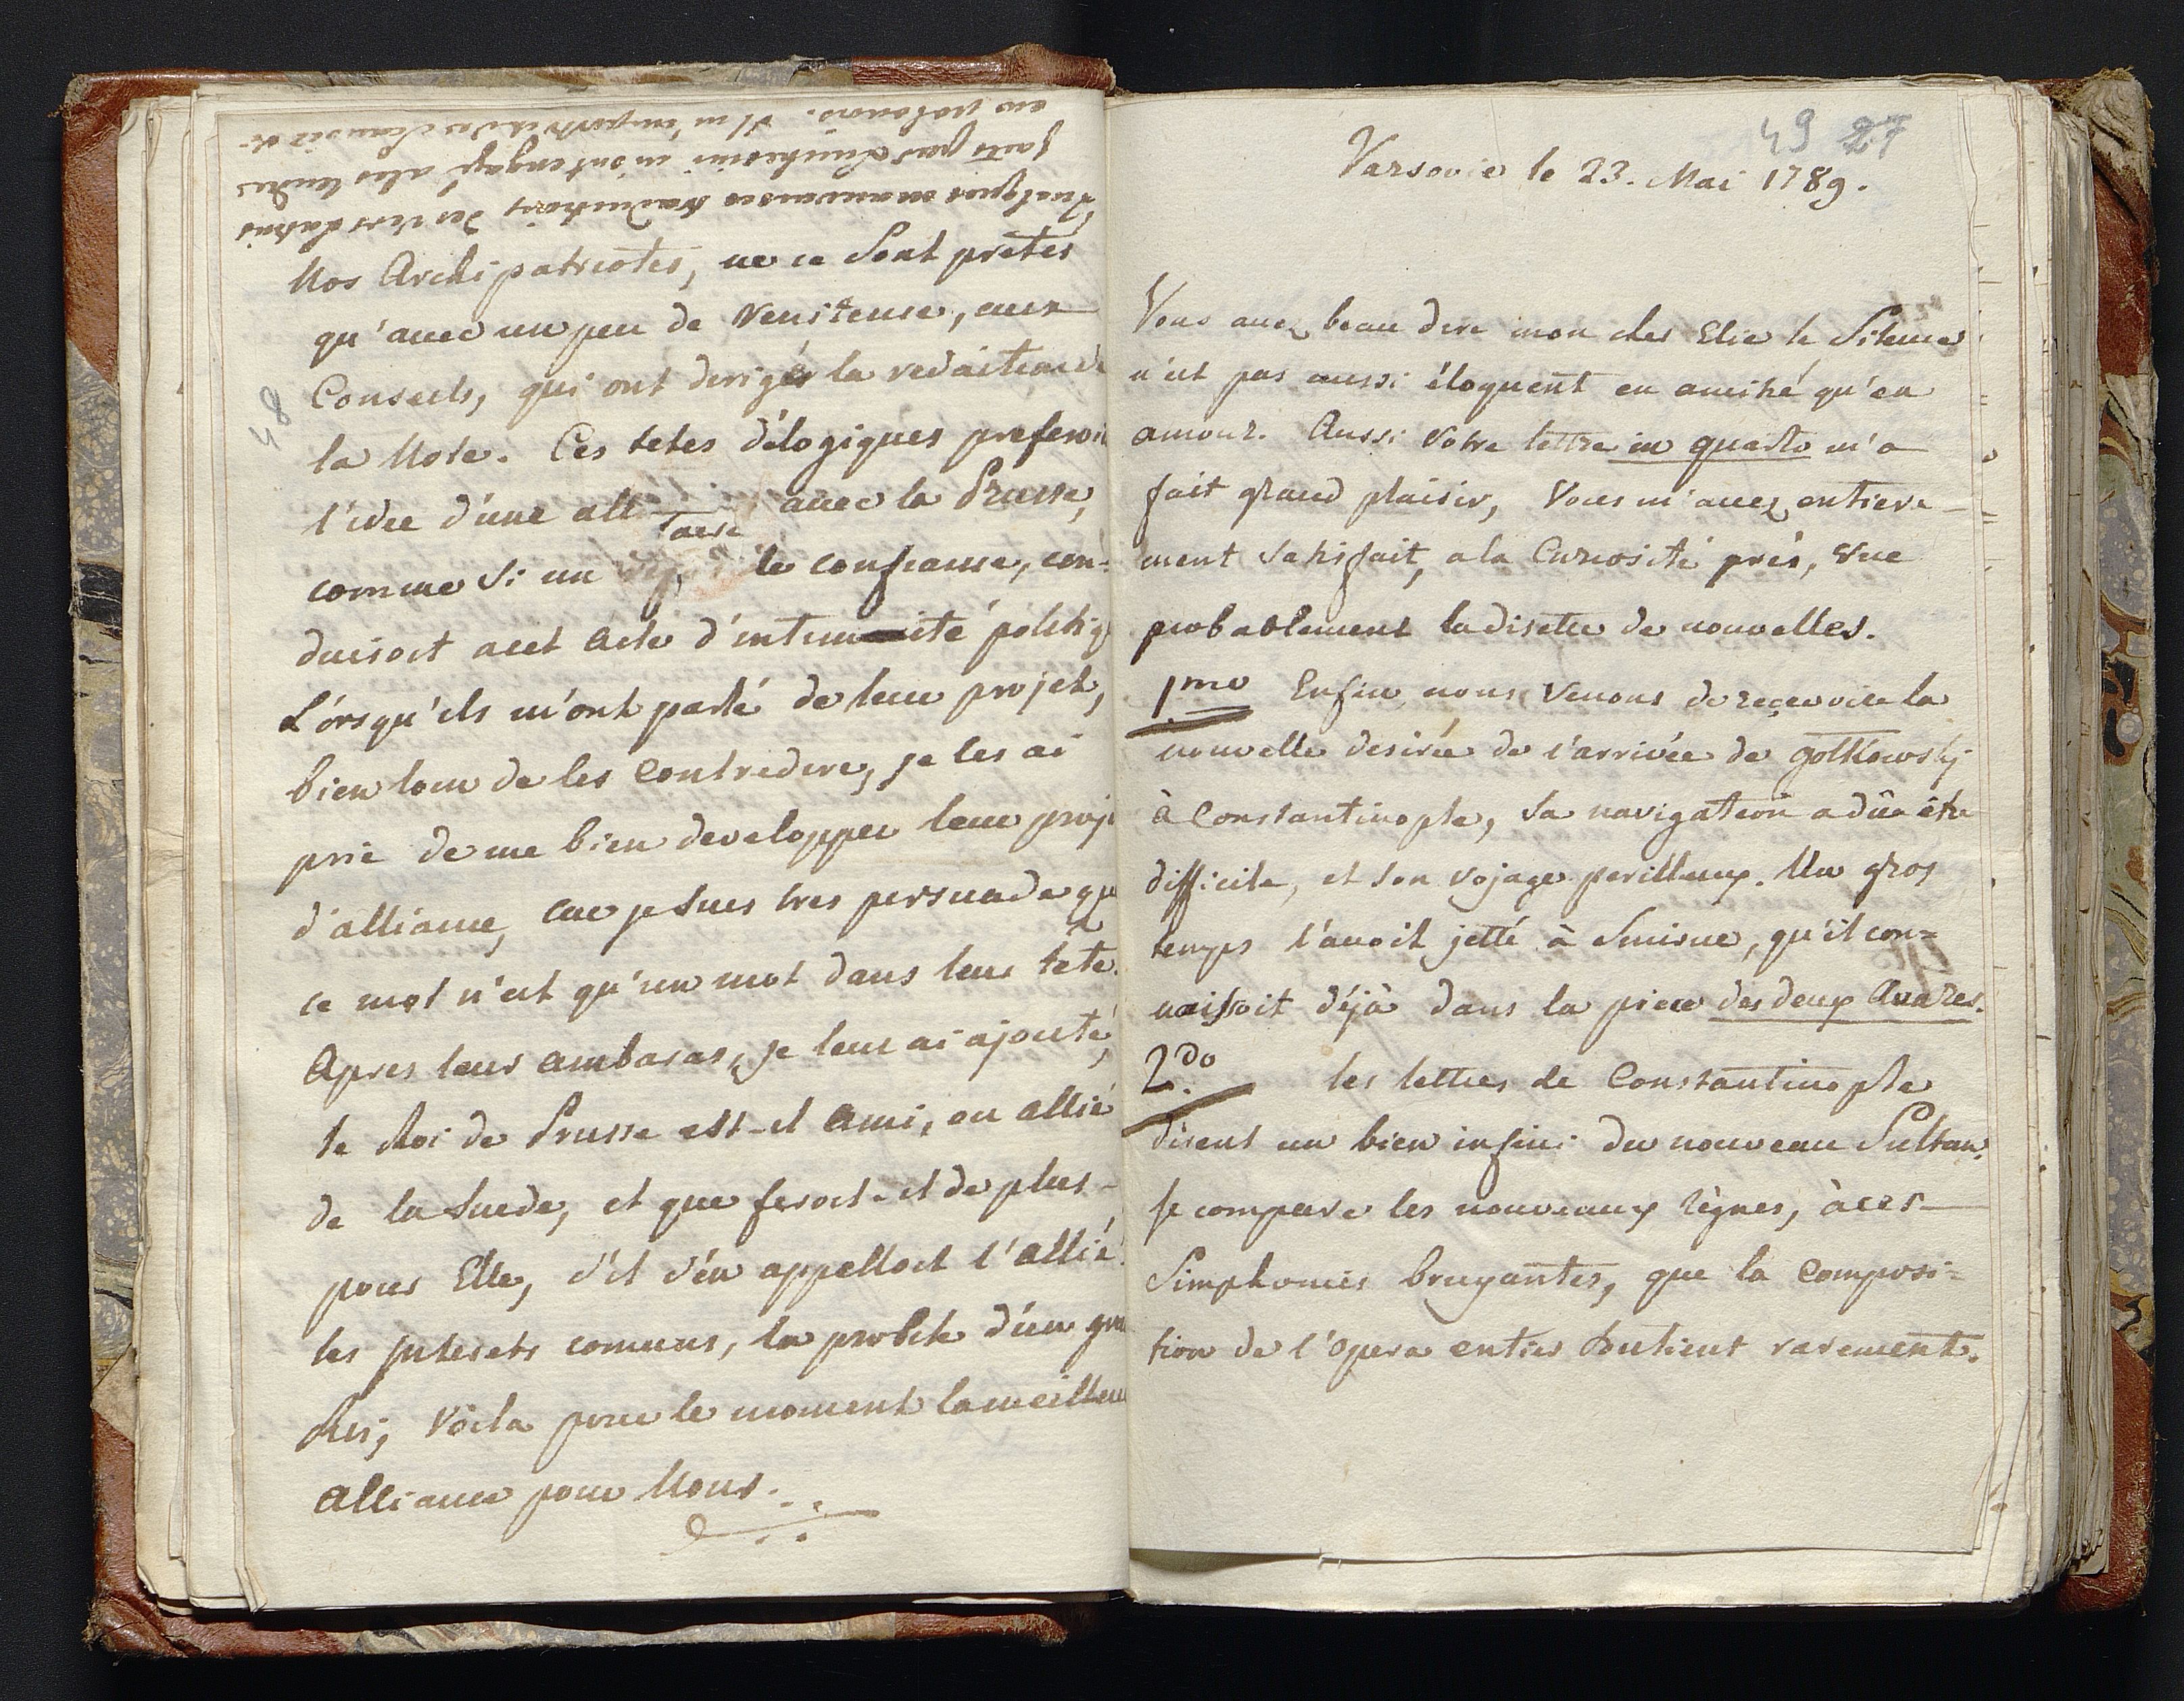 quelques mauvaises traductions des vers latins
faits par Luchesini m'ont engagé a les rendre
en polonois. Il m'importe
Nos Archipatriotes, ne ce sont prètés
qu'avec un peu de
48
Conseils, qui ont dirigés la redaction de
la Note. Ces tetes délogiques
l'idee d'une all avec la Prusse,
comme si un de confiance, con:
duisoit acet Acte d'intimité politiq
Lorsqu'ils m'ont parlé de leur projet,
bien loin de les Contredire, je les ai
prié de me bien developper leur proje
d'alliance, car je suis tres persuadé que
ce mot n'est qu'un mot dans leur tete.
Apres leur ambaras, je leur ai ajouté,
le Roi de Prusse est-il Ami, ou allié
de la Suede, et que feroit-il de plus-
pour Elle, s'il s'en appelloit l'allié.
les Interets comuns, la probité d'un gra
Roi, Voila pour le moment la meilleu
Alliance pour Nous.
49 27
Varsovie le 23. Mai 1789.
Vous avez beau dire mon cher Elie le Silence
n'est pas aussi éloquent en amitié qu'en
amour. Aussi Votre lettre in quarto m'a
fait grand plaisir, Vous m'avez entiere-
ment satisfait, a la Curiosité près, Vue
probablement la disette de nouvelles.
1mo Enfin nous Venons de reçevoir la
nouvelle desirée de l'arrivée de Gotkowskj
à Constantinople, sa navigation a dûe être
difficile, et son vojage perilleux. Un gros
temps l'avoit jetté à Smirne, qu'il con=
naissoit déjà dans la piece des deux Avares.
2do. les lettres de Constantinople
disent un bien infini du nouveau Sultan.
Je compare les nouveaux règnes, à ces-
Simphonies bruyantes, que la Composi=
tion de l'Opera entier soutient rarement.